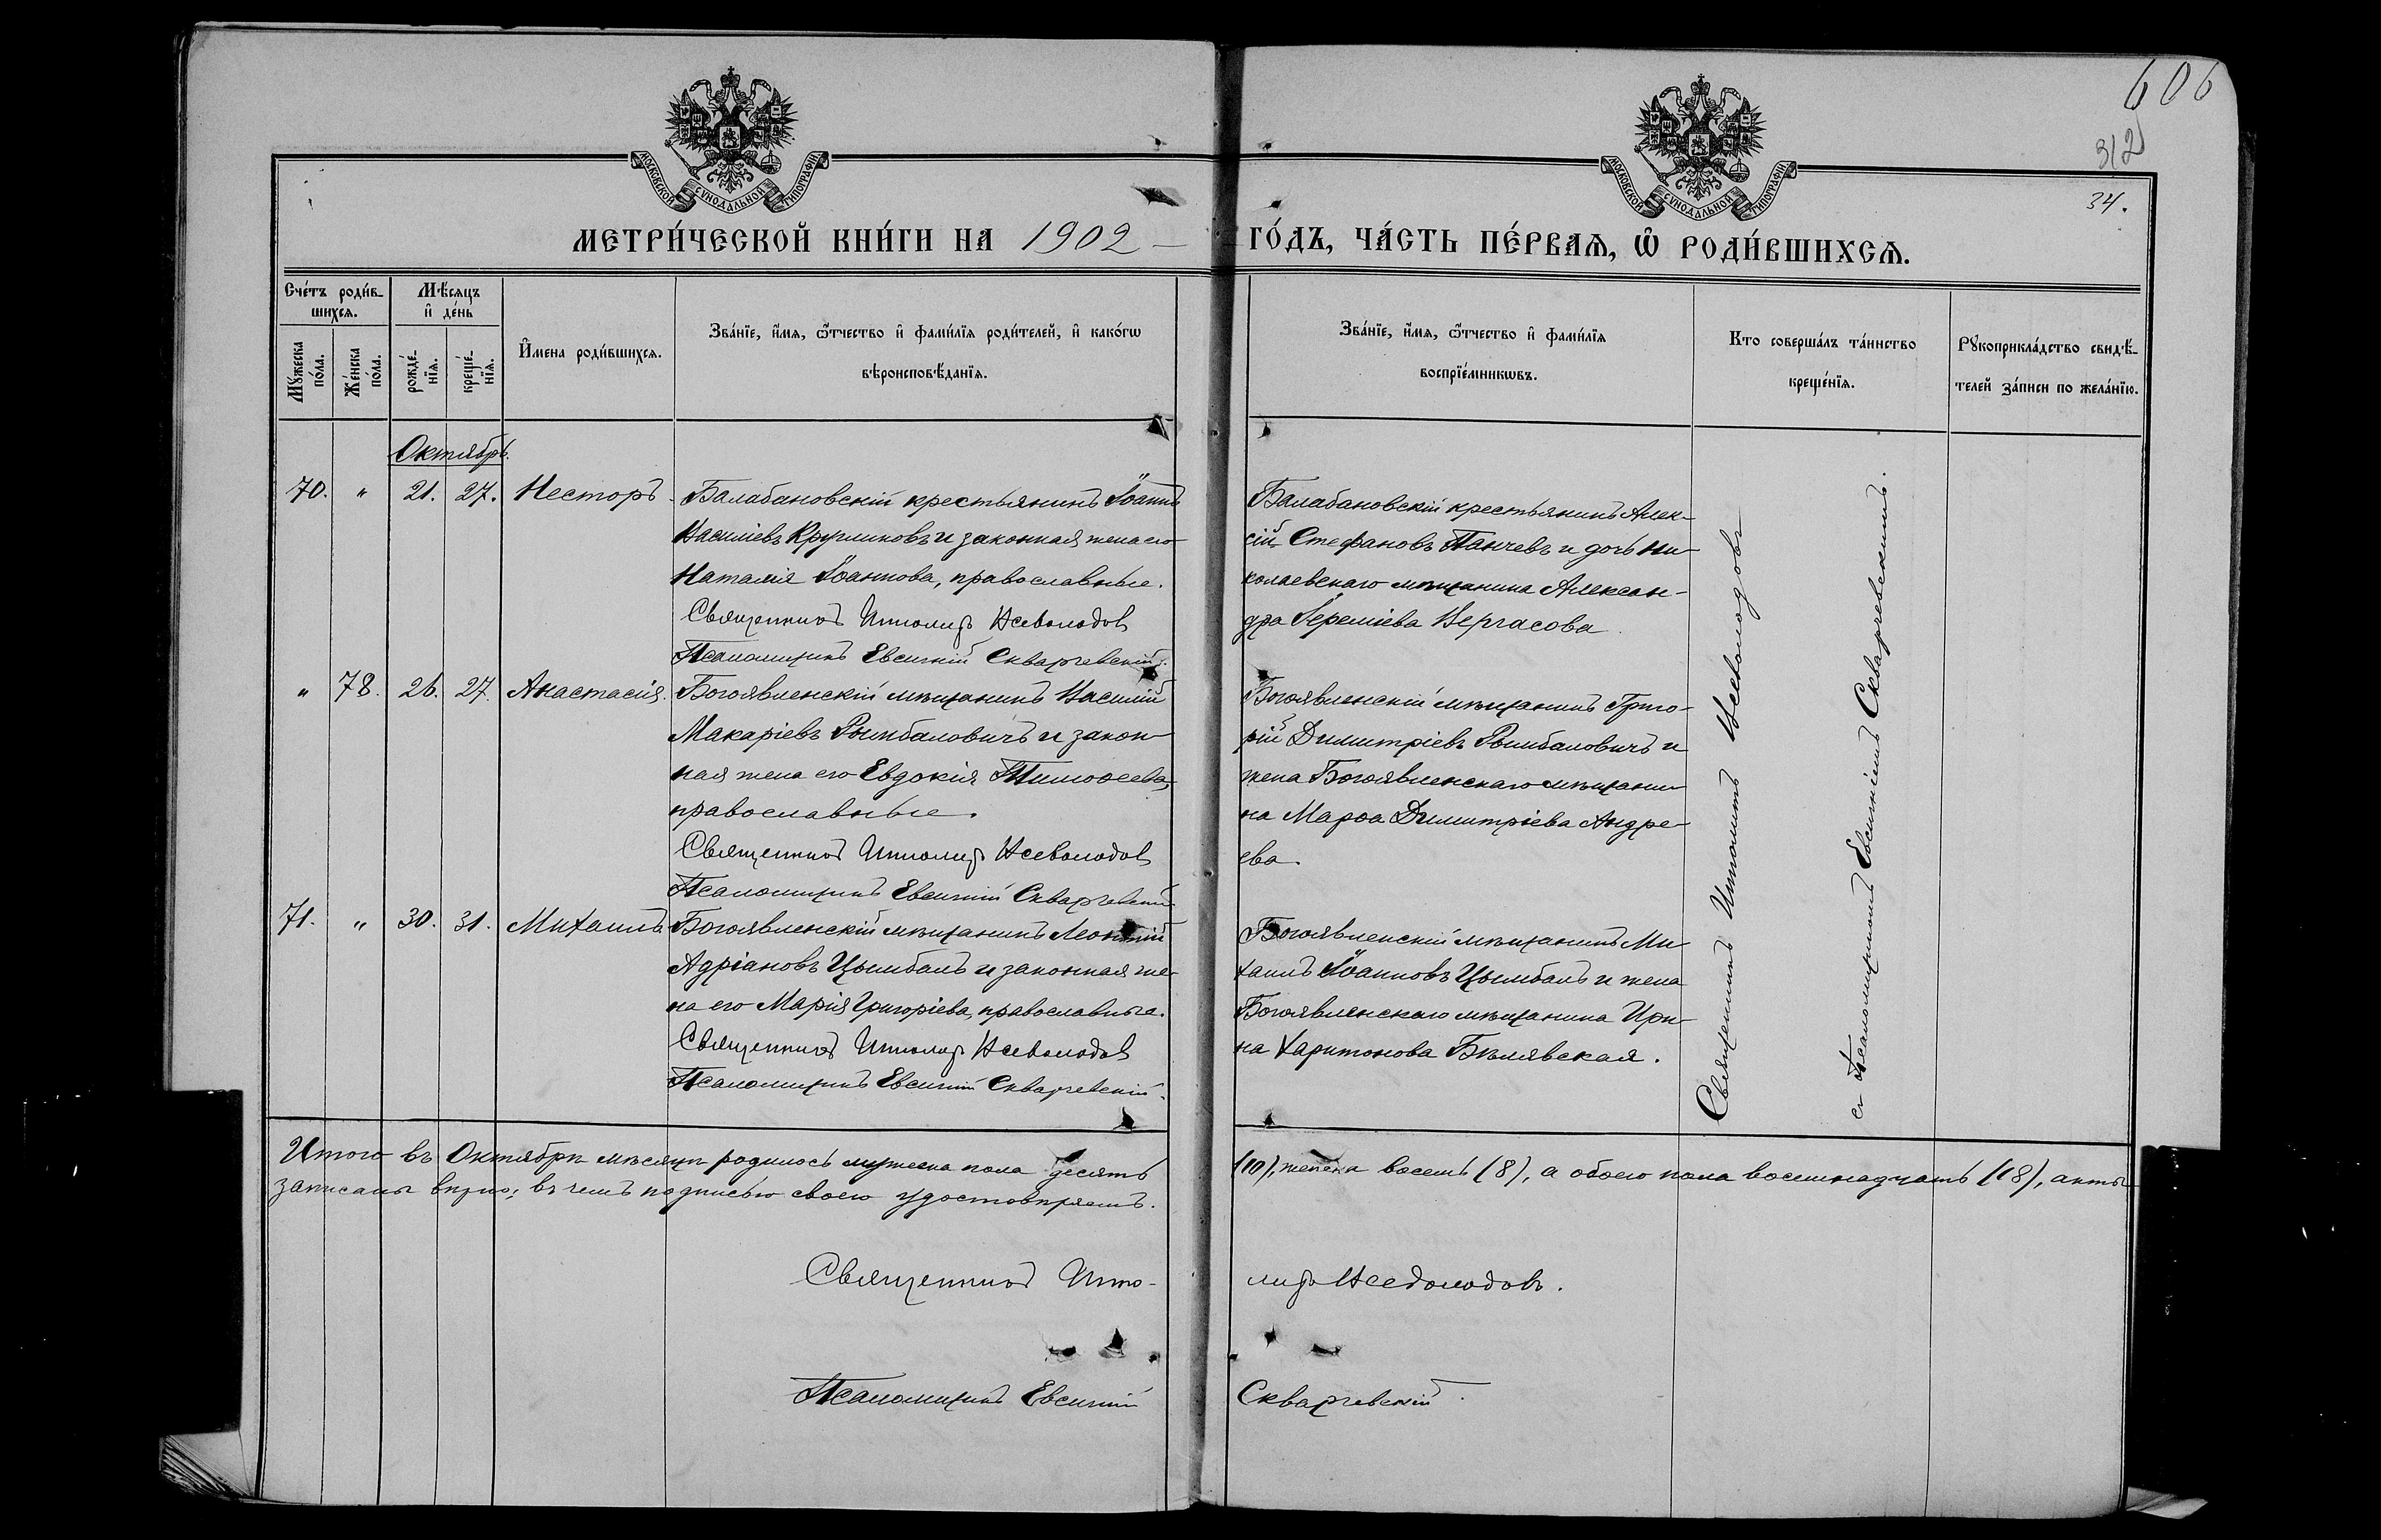 606
312
34.
МОСКОВСКОЙ СУНОДАЛЬНОЙ ТИПОГРАФІИ
МОСКОВСКОЙ СУНОДАЛЬНОЙ ТИПОГРАФІИ
МЕТРИ́ЧЕСКОЙ КНИ́ГИ НА 1902 –
ГО́ДЪ, ЧА́СТЬ ПЕ́РВАѦ, Ѡ҆ РОДИ́ВШИХСѦ.
Сче́тъ роди́в-
шихсѧ.
Мꙋ́жеска
по́ла.
Же́нска
по́ла.
Мѣ́сѧцъ
и҆ де́нь
рожде́-
нїѧ.
креще́-
нїѧ.
И҆мена роди́вшихсѧ.
Зва́нїе, и҆́мѧ, ѻ҆́тчество и҆ фами́лїѧ роди́телей, и҆ како́гѡ
вѣроисповѣ́данїѧ.
Зва́нїе, и҆́мѧ, ѻ҆́тчество и҆ фами́лїѧ
воспрїе́мникѡвъ.
Кто соверша́лъ та́инство
креще́нїѧ.
Рꙋкоприкла́дство свидѣ́-
телей за́писи по жела́нїю.
Октябрь.
70. " 21. 27. Несторъ.
Балабановскій крестьянинъ Іоаннъ
Василіевъ Кругликовъ и законная жена его
Наталія Іоаннова, православные.
Священникъ Ипполитъ Всеволодовъ
Псаломщикъ Евсигній Скварчевскій.
Балабановскій крестьянинъ Алек-
сій Стефановъ Панчевъ и дочь Ни-
колаевскаго мѣщанина Алексан-
дра Іереміева Вергасова
" 78. 26. 27. Анастасія.
Богоявленскій мѣщанинъ Василій
Макаріевъ Рымбаловичъ и закон-
ная жена его Евдокія Тимоѳеева,
православные.
Священникъ Ипполитъ Всеволодовъ
Псаломщикъ Евсигній Скварчевскій
Богоявленскій мѣщанинъ Григо-
рій Димитріевъ Рымбаловичъ и
жена Богоявленскаго мѣщани-
на Марѳа Димитріева Андре-
ева.
71. " 30. 31. Михаилъ
Богоявленскій мѣщанинъ Леонтій
Адріановъ Цымбалъ и законная же-
на его Марія Григоріева, православные.
Священникъ Ипполитъ Всеволодовъ
Псаломщикъ Евсигній Скварчевскій.
Богоявленскій мѣщанинъ Ми-
хаилъ Іоанновъ Цымбалъ и жена
Богоявленскаго мѣщанина Ири-
на Харитонова Бѣлявская.
Священникъ Ипполитъ Всеволодовъ
съ Псаломщикомъ Евсигніемъ Скварчевскимъ.
Итого въ Октябрѣ мѣсяцѣ родилось мужеска пола десять
(10), женска восемь (8), а обоего пола восемнадцать (18), акты
записаны вѣрно; въ чемъ подписью своею удостовѣряемъ.
Священникъ Иппо-
литъ Всеволодовъ.
Псаломщикъ Евсигній
Скварчевскій.